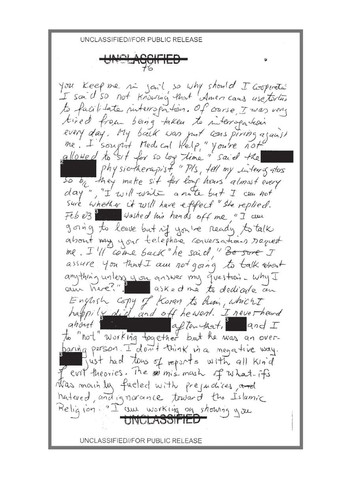 UNCLASSIFIED//FOR PUBLIC RELEASE
UNCLASSIFIED
76
you keep me in jail so why should I cooperate
I said so not knowing that Americans use torture
to facilitate interrogation. Of course I was very
tired from being taken to interrogation
every day. My back was just conspiring against
me. I sought Medical Help, "you're not
allowed to sit for so long time" said the
physiotherapist "Pls, tell my interrogators
so bc they make sit for long hours almost every
day", "I will write a note but I am not
sure whether it will have effect" She replied.
Feb 03 washed his hands off me. "I am
going to leave but if you're ready to talk
about my your telephone conversations request
me. I'll come back" he said, "Be sure I
assure you that I am not going to talk about
anything unless you answer my question: Why I
am here?". asked me to dedicate an
English copy of Koran to him, which I
happily did, and off he went. I never heard
about after that. and I
to "not" working together but he was an over-
baring person. I don't think in a negative way.
just had tons of reports with all kind
of evil theories. The mis mash of what-ifs
was mainly fueled with prejudices, and
hatred, and ignorance toward the Islamic
Religion. "I am working on showing you
UNCLASSIFIED
UNCLASSIFIED//FOR PUBLIC RELEASE